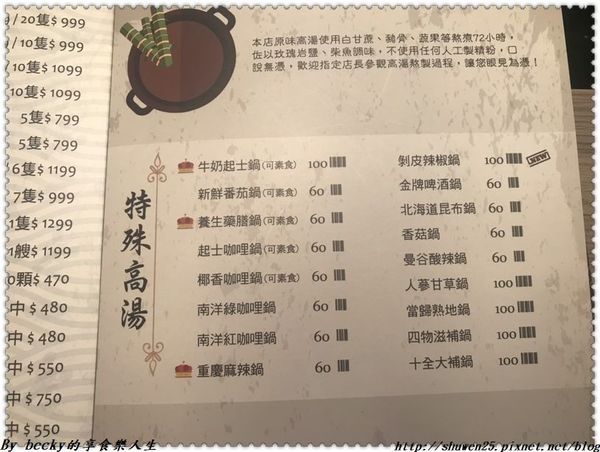 / 20隻$ 999
/ 10隻$ 999
10隻$ 1099
10隻$ 1099
5隻$ 799
5隻$ 799
6隻$ 1199
7隻$ 999
1隻$ 1299
1艘$ 1199
0顆$ 470
中 $ 480
中 $ 480
中 $ 550
中 $ 750
中 $ 550
本店原味高湯使用白甘蔗、雞骨、蔬果等熬煮72小時，
佐以玫瑰岩鹽、柴魚調味，不使用任何人工製精粉，口
說無憑，歡迎指定店長參觀高湯熬製過程，讓您眼見為憑！
特殊高湯
牛奶起士鍋(可素食) 100
新鮮番茄鍋(可素食) 60
養生藥膳鍋(可素食) 60
起士咖哩鍋(可素食) 60
椰香咖哩鍋(可素食) 60
南洋綠咖哩鍋 60
南洋紅咖哩鍋 60
重慶麻辣鍋 60
剝皮辣椒鍋 100 NEW
金牌啤酒鍋 60
北海道昆布鍋 60
香菇鍋 60
曼谷酸辣鍋 60
人蔘甘草鍋 100
當歸熟地鍋 100
四物滋補鍋 100
十全大補鍋 100
By becky的享食樂人生
http://shuwen25.pixnet.net/blog